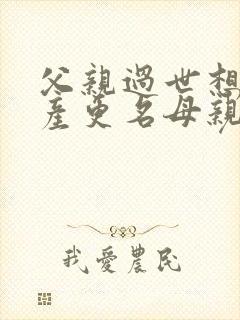 父親過世相
產更名母親
我愛農民